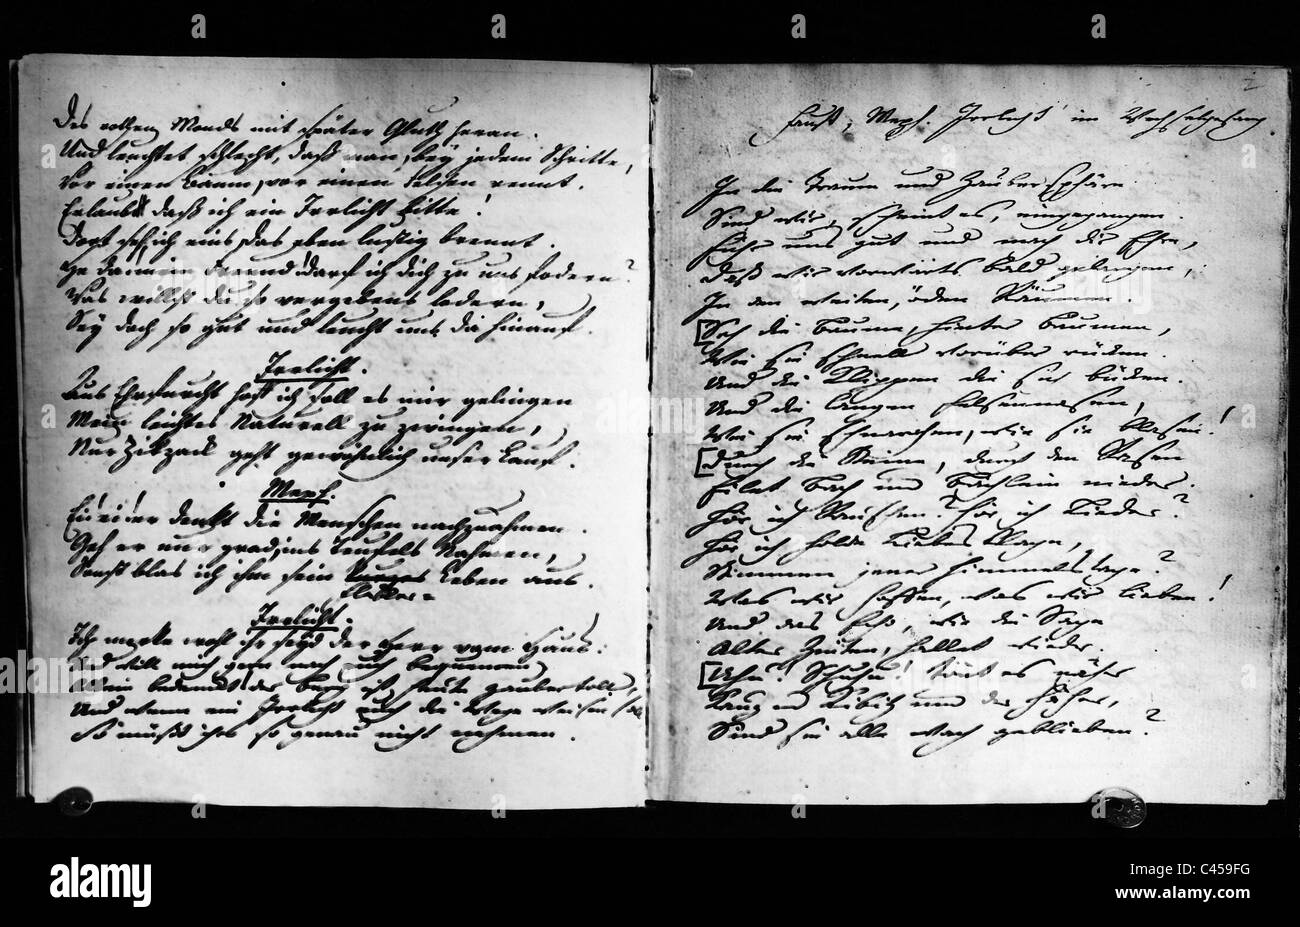 Des rothen Monds mit später Gluth heran.
Und leuchtet schlecht, daß man, bey jedem Schritte,
Vor einen Baum, vor einen Felsen rennt.
Erlaub' daß ich ein Irrlicht bitte!
Dort seh ich eins, das eben lustig brennt.
He da! mein Freund! darf ich dich zu uns fodern?
Was willst du so vergebens lodern,
Sey doch so gut und leucht uns da hinauf.
Irrlicht.
Aus Ehrfurcht hoff ich soll es mir gelingen
Mein leichtes Naturell zu zwingen,
Nur Zikzack geht gewöhnlich unser Lauf.
Meph.
Ei! ei! er denkt die Menschen nachzuahmen.
Geh er nur grad, ins Teufels Nahmen,
Sonst blas ich ihm sein Leben aus.
Flacker=
Irrlicht.
Ich merke wohl Ihr seyd der Herr vom Haus.
Und will mich gern nach euch bequemen
Allein bedenckt! der Berg ist heute zaubertoll,
Und wenn ein Irrlicht euch die Wege weisen soll
So müßt ihrs so genau nicht nehmen.
2
Faust, Meph. Irrlicht im Wechselgesang
In die Traum und Zauber Sphäre
Sind wir, scheint es, eingegangen.
Führ uns gut und mach dir Ehre,
Daß wir vorwärts bald gelangen,
In den weiten, öden Räumen.
[Seh die Bäume, hinter Bäumen,
Wie sie schnelle vorüber rücken.
Und die Klippen die sich bücken.
Und die langen Felsennasen,
Wie sie schnarchen, wie sie blasen!
[Durch die Steine, durch den Rasen
Eilet Bach und Bächlein nieder.
Hör ich Rauschen? hör ich Lieder?
Hör ich holde Liebesklage,
Stimmen jener Himmelstage?
Was wir hoffen, was wir lieben!
Und das Echo, wie die Sage
Alter Zeiten, hallet wieder.
[Uhu! Schuhu! tönt es näher
Kauz und Kibitz und der Häher,
Sind sie alle wach geblieben?
alamy
C459FG
www.alamy.com